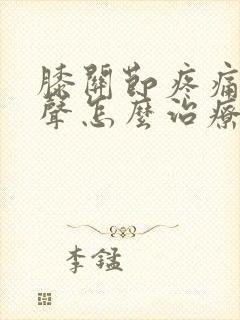 膝關節疼痛
聲怎麼治療
李錳